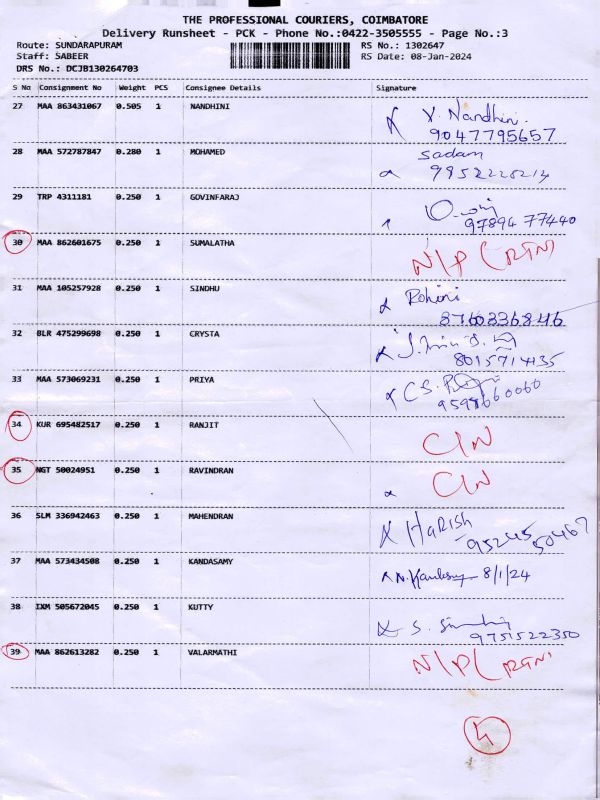 THE PROFESSIONAL COURIERS, COIMBATORE
Delivery Runsheet - PCK - Phone No.:0422-3505555 - Page No.:3
Route: SUNDARAPURAM RS No.: 1302647
Staff: SABEER RS Date: 08-Jan-2024
DRS No.: DCJB130264703
S No Consignment No Weight PCS Consignee Details Signature
27 MAA 863431067 0.505 1 NANDHINI V. Nandhini
9047795657
28 MAA 572787847 0.280 1 MOHAMED Sadam
29 TRP 4311181 0.250 1 GOVINFARAJ
97894 77440
30 MAA 862601675 0.250 1 SUMALATHA N/P (RTN)
31 MAA 105257928 0.250 1 SINDHU Rohini
8760336846
32 BLR 475299698 0.250 1 CRYSTA
8015714135
33 MAA 573069231 0.250 1 PRIYA C S.
9597660060
34 KUR 695482517 0.250 1 RANJIT CIN
35 NGT 50024951 0.250 1 RAVINDRAN CIN
36 SLM 336942463 0.250 1 MAHENDRAN Harish
9524550467
37 MAA 573434508 0.250 1 KANDASAMY 8/1/24
38 IXM 505672045 0.250 1 KUTTY S.
9751522350
39 MAA 862613282 0.250 1 VALARMATHI N/P (RTN)
4